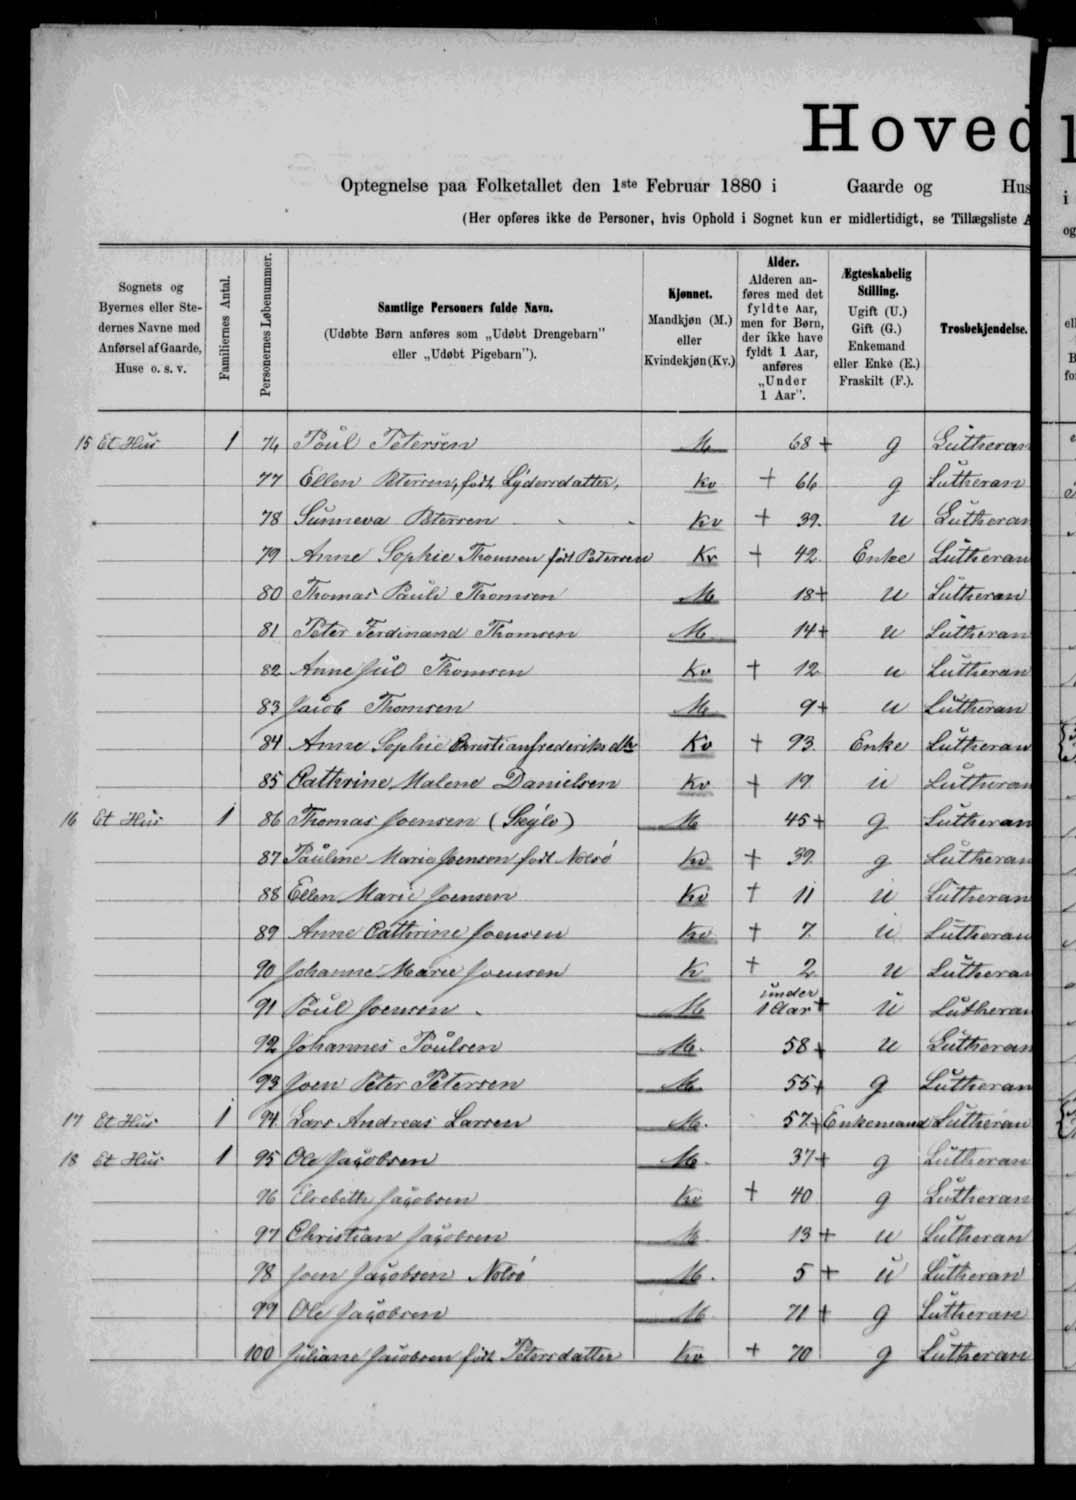 Hoved
Optegnelse paa Folketallet den 1ste Februar 1880 i Gaarde og Hus
(Her opføres ikke de Personer, hvis Ophold i Sognet kun er midlertidigt, se Tillægsliste A
Sognets og Byernes eller Stedernes Navne med Anførsel af Gaarde, Huse o. s. v.
Familiernes Antal.
Personernes Løbenummer.
Samtlige Personers fulde Navn.
(Udøbte Børn anføres som „Udøbt Drengebarn" eller „Udøbt Pigebarn").
Kjønnet.
Mandkjøn (M.) eller Kvindekjøn (Kv.)
Alder.
Alderen anføres med det fyldte Aar, men for Børn, der ikke have fyldt 1 Aar, anføres „Under 1 Aar".
Ægteskabelig Stilling.
Ugift (U.) Gift (G.) Enkemand eller Enke (E.) Fraskilt (F.).
Trosbekjendelse.
15 Et Hus 1 76 Poul Petersen M 68 + g Lutheran
77 Ellen Petersen, født Lydersdatter, Kv + 66 g Lutheran
78 Sunneva Petersen Kv + 39. u Lutheran
79 Anne Sophie Thomsen født Petersen Kv + 42 Enke Lutheran
80 Thomas Pauli Thomsen M 18 + u Lutheran
81 Peter Ferdinand Thomsen M 14 + u Lutheran
82 Anne Jul Thomsen Kv + 12 u Lutheran
83 Jacob Thomsen M 9 + u Lutheran
84 Anne Sophie Christianfrederiks dtr Kv + 93 Enke Lutheran
85 Cathrine Malene Danielsen Kv + 19 u Lutheran
16 Et Hus 1 86 Thomas Joensen (Skylv) M 45 + g Lutheran
87 Pauline Marie Joensen født Nolsø Kv + 39 g Lutheran
88 Ellen Marie Joensen Kv + 11 u Lutheran
89 Anne Cathrine Joensen Kv + 7 u Lutheran
90 Johanne Marie Joensen K + 2 u Lutheran
91 Poul Joensen M under 1 Aar + u Lutheran
92 Johannes Poulsen M. 58 + u Lutheran
93 Joen Peter Petersen M 55 + g Lutheran
17 Et Hus 1 94 Lars Andreas Larsen M. 57 + Enkemand Lutheran
18 Et Hus 1 95 Ole Jacobsen M. 37 + g Lutheran
96 Elsebeth Jacobsen Kv + 40 g Lutheran
97 Christian Jacobsen M 13 + u Lutheran
98 Joen Jacobsen Nolsø M. 5 + u Lutheran
99 Ole Jacobsen M 71 + g Lutheran
100 Juliane Jacobsen født Petersdatter Kv + 70 g Lutheran